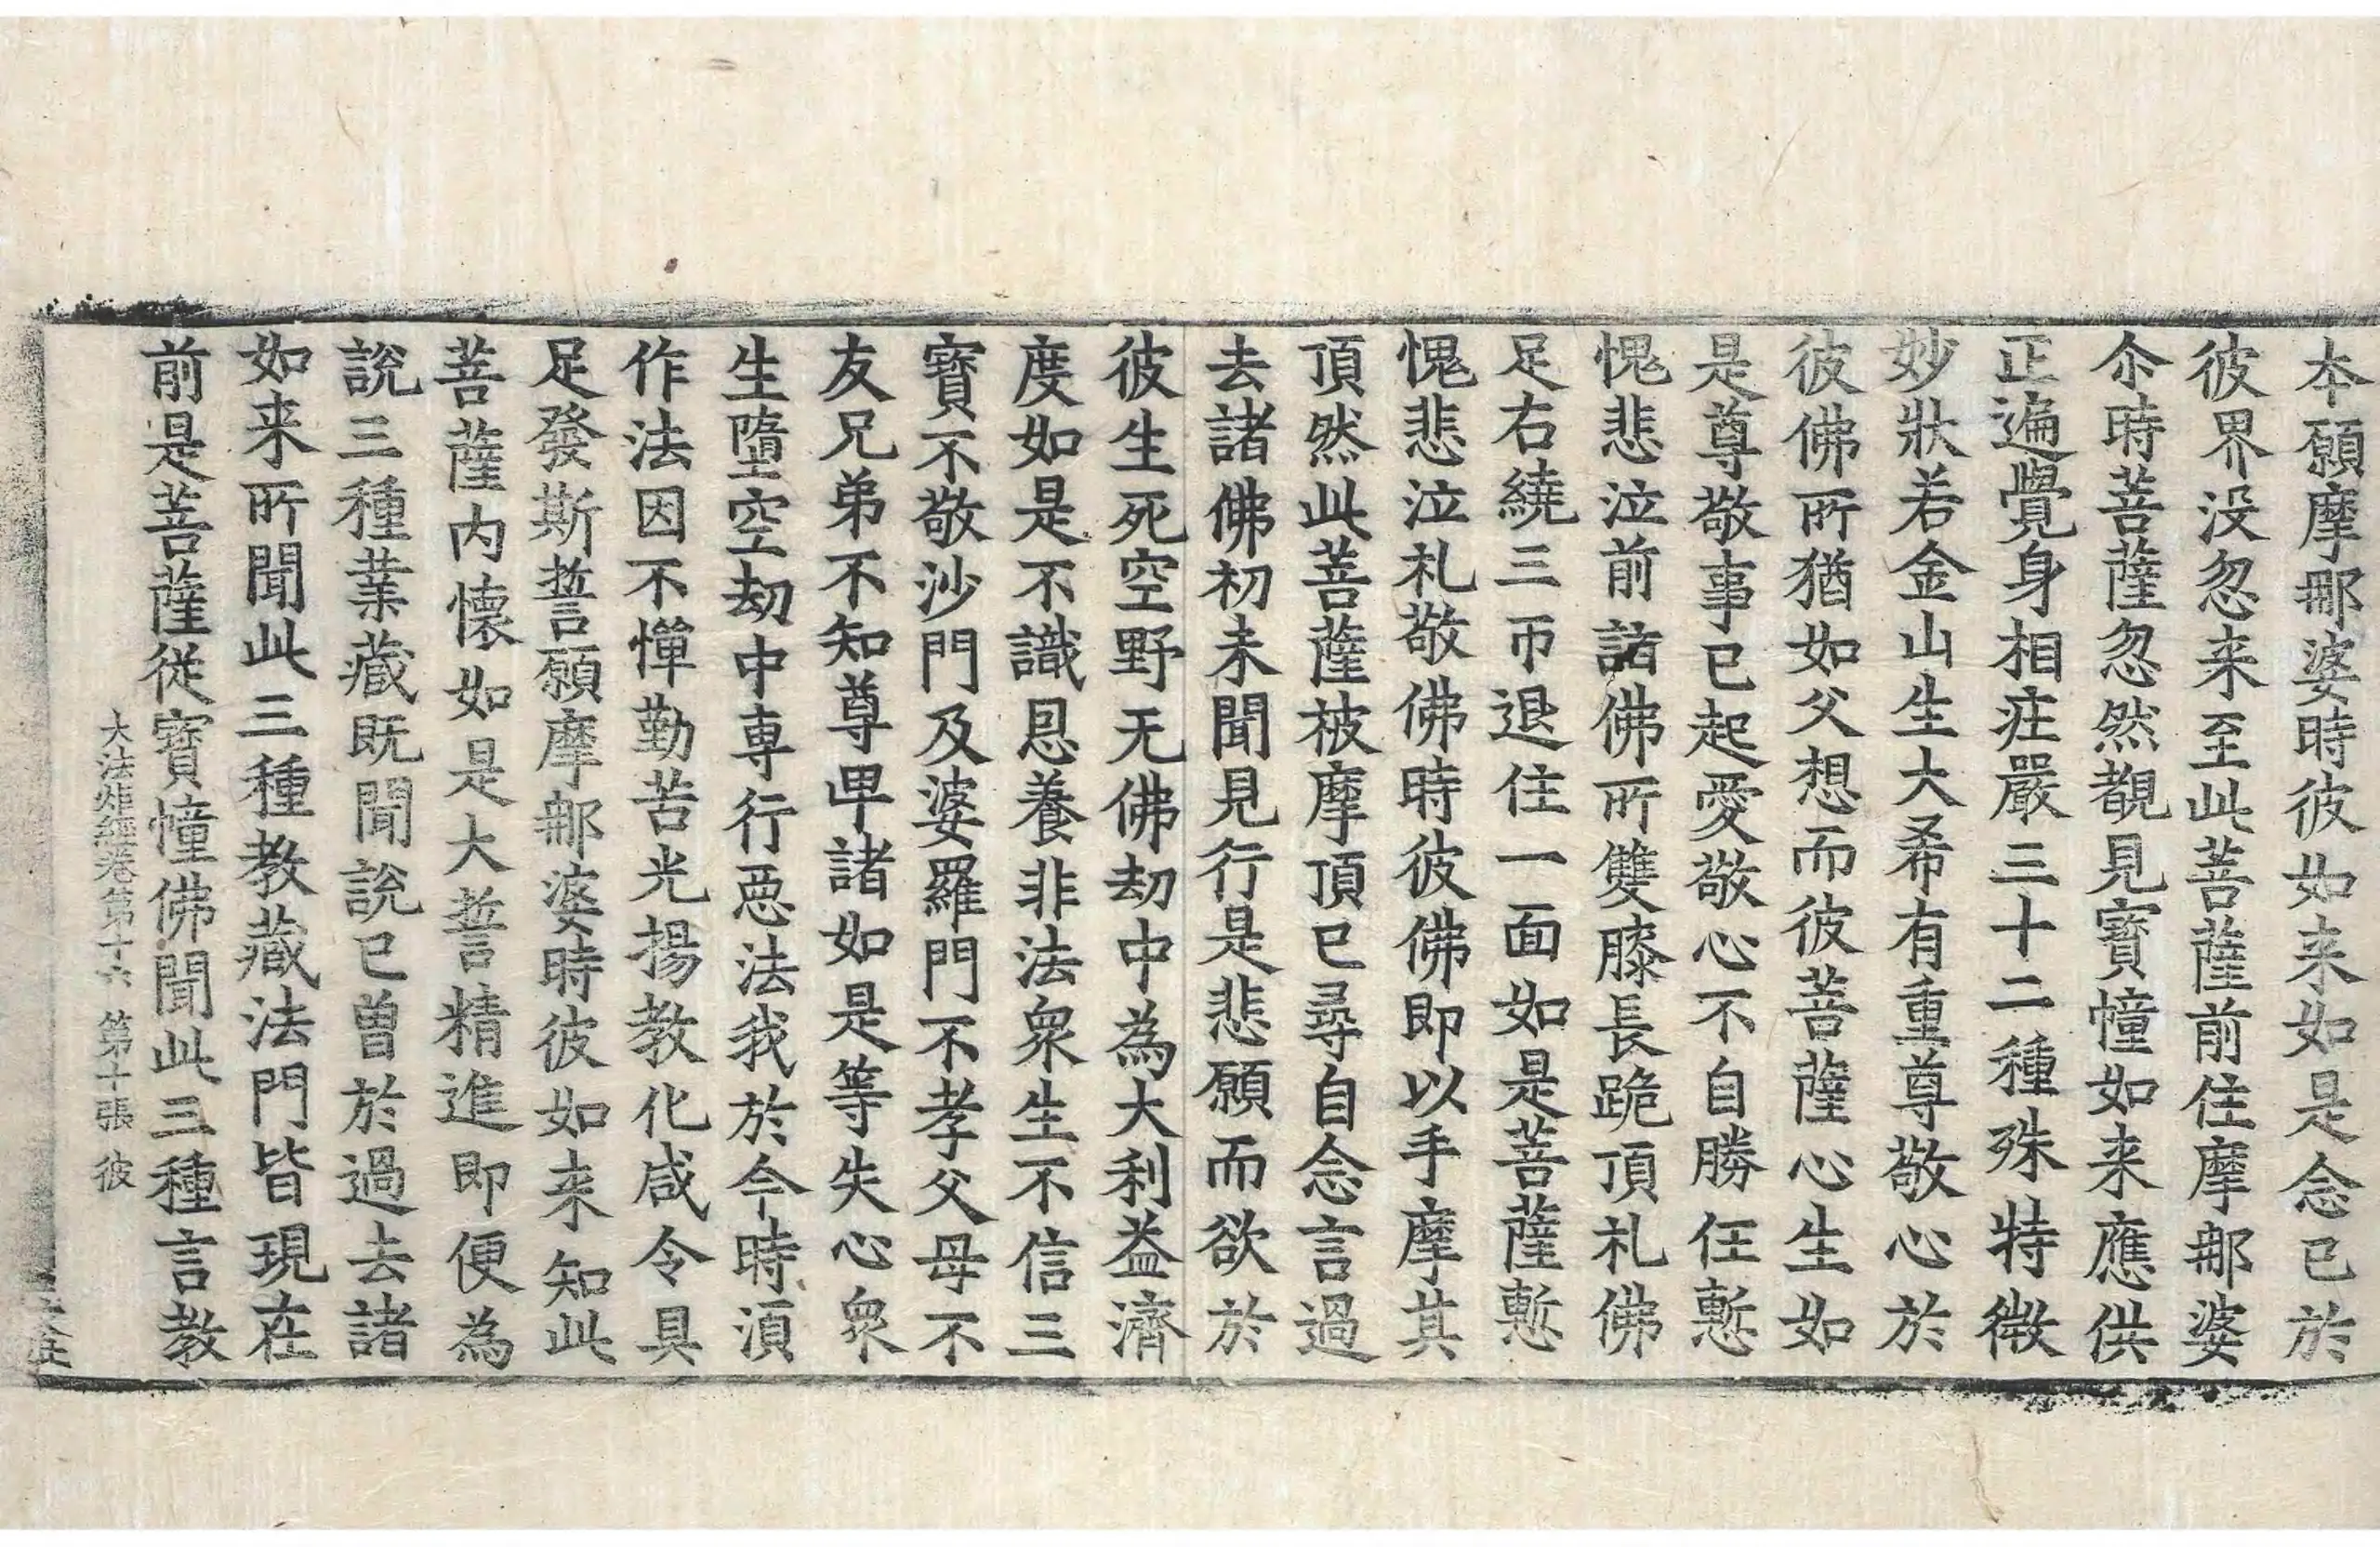 本願摩那婆時彼如来如是念已於
彼界没忽来至此菩薩前住摩那婆
尒時菩薩忽然覩見寶幢如来應供
正遍覺身相庄嚴三十二種殊特微
妙狀若金山生大希有重尊敬心於
彼佛所猶如父想而彼菩薩心生如
是尊敬事已起愛敬心不自勝任慙
愧悲泣前詣佛所雙膝長跪頂礼佛
足右繞三帀退住一面如是菩薩慙
愧悲泣礼敬佛時彼佛即以手摩其
頂然此菩薩被摩頂已尋自念言過
去諸佛初未聞見行是悲願而欲於
彼生死空野无佛劫中為大利益濟
度如是不識恩養非法衆生不信三
寶不敬沙門及婆羅門不孝父母不
友兄弟不知尊卑諸如是等失心衆
生墮空劫中専行惡法我於今時湏
作法因不憚勤苦光揚教化咸令具
足發斯誓願摩那婆時彼如来知此
菩薩内懷如是大誓精進即便為
說三種業藏既聞說已曽於過去諸
如来所聞此三種教藏法門皆現在
前是菩薩從寶幢佛聞此三種言教
大法炬經卷第十六 第十張 彼